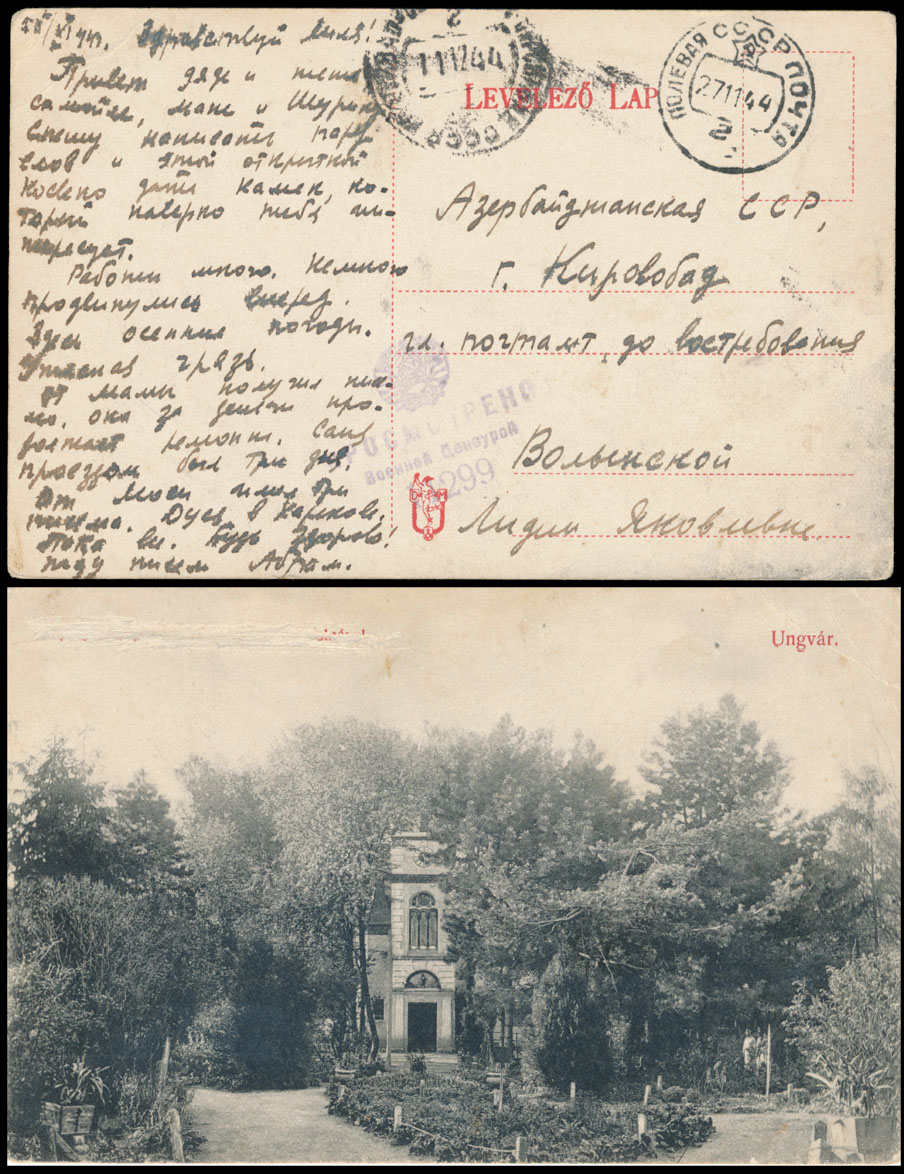 Здравствуй Лиля!
Привет дяде и тете
самойле, мате и Шурику
Спешу написать пару
слов и этой открыткой
дать камен, ко-
торый наверно тебя ин-
тересует.
Работы много. Немного
продвинулись вперед.
Здесь осенние погоды.
грязь.
От мамы получил пись-
мо, она за деньги про-
должает ремонт. Саня
проездом был три дня.
От имел три
письма. Дуся в Харькове.
Пока все. Будь здорова!
жду писем Абрам.
LEVELEZŐ LAP
ПОЛЕВАЯ ПОЧТА
СССР
271144
111244
СССР
Азербайджанская ССР,
г. Кировобад
гл. почтамт до востребования
Волынской
Лидии Яковлевне
ПРОСМОТРЕНО
Военной Цензурой
299
D M
Ungvár.